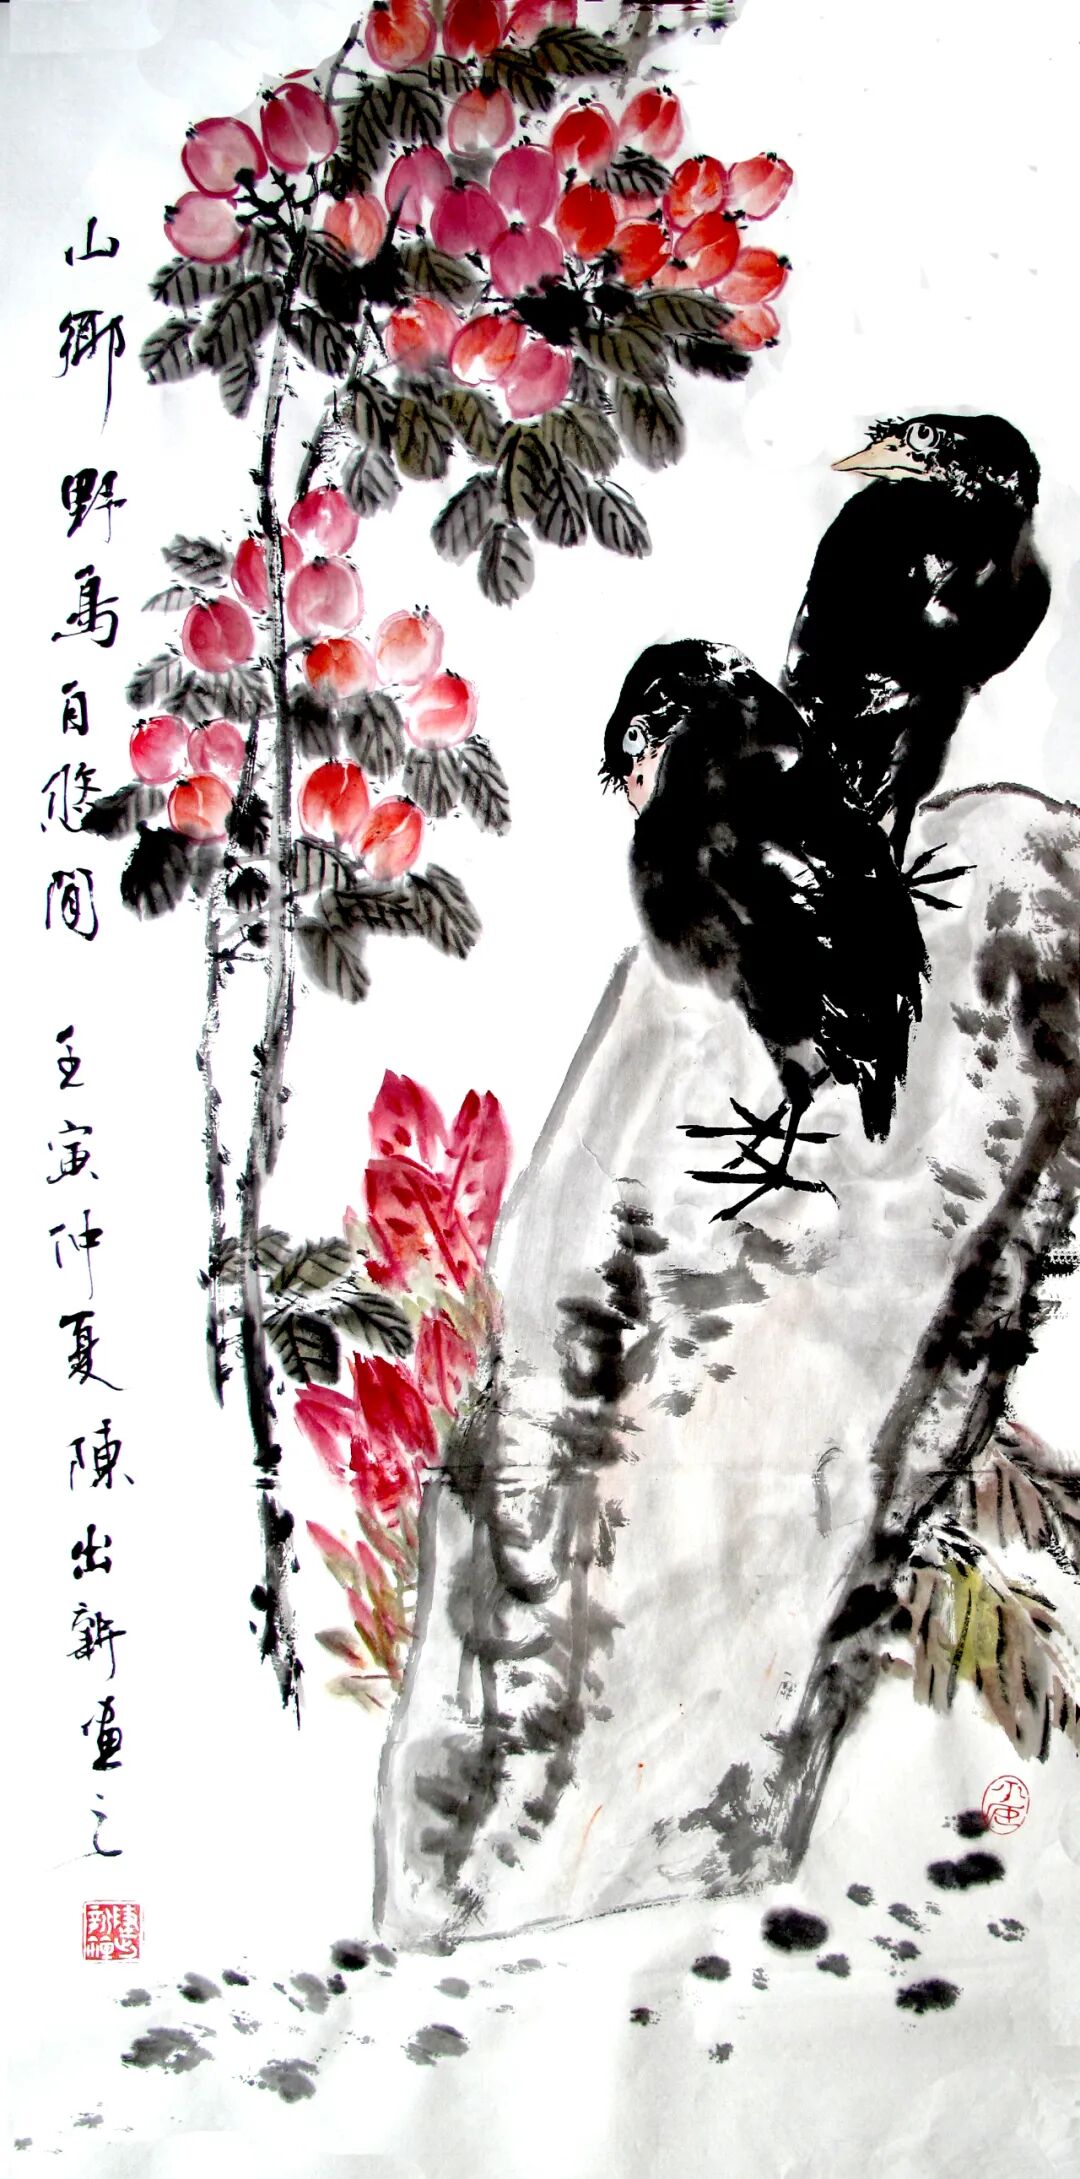 山鄉野鳥自悠閒 壬寅仲夏陳出新畫之